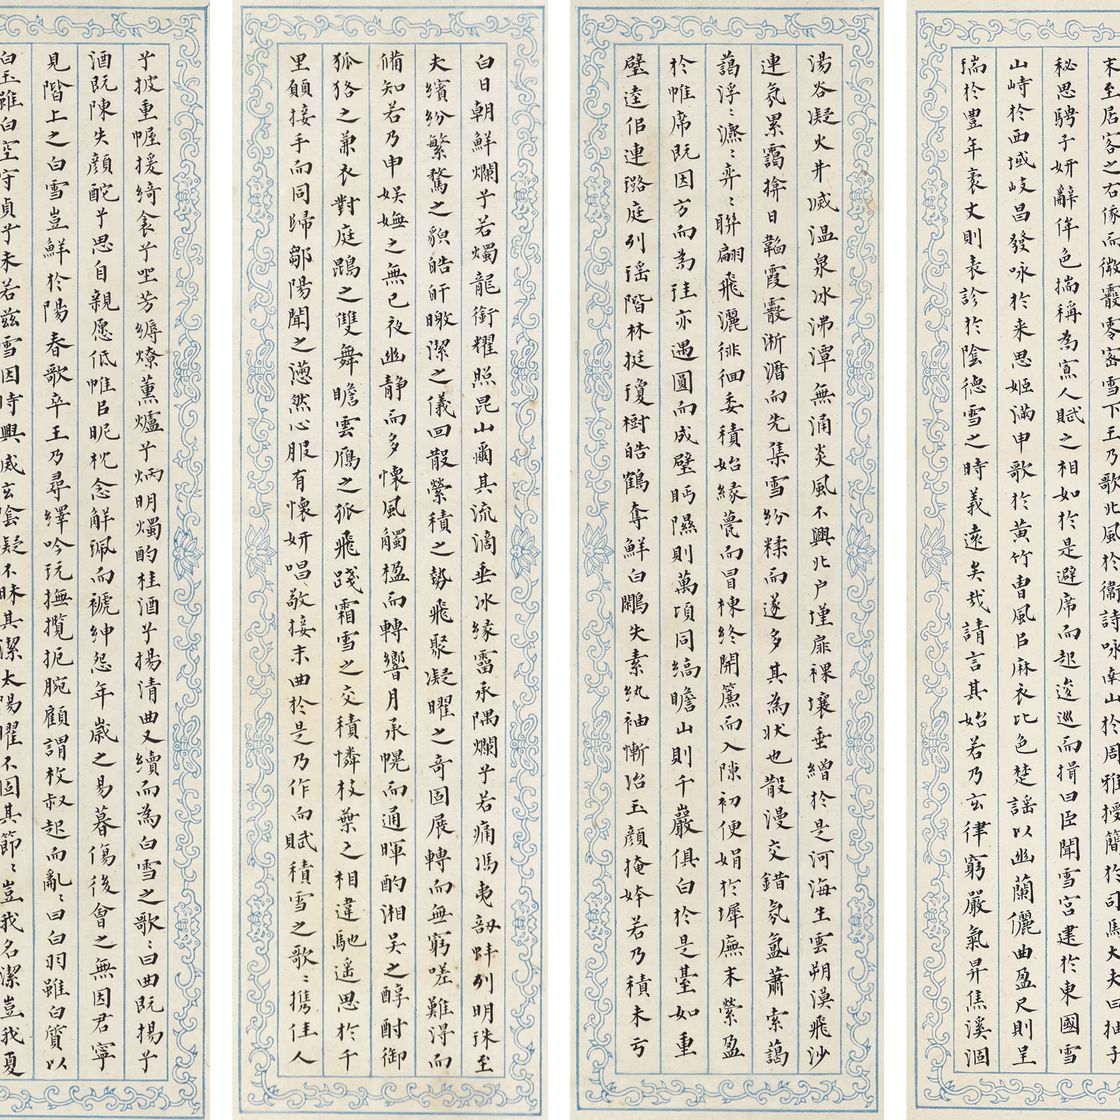 末至居客之右俄而微霰零密雪下王乃歌北風於衛詩咏南山於周雅授簡於司馬大夫曰抽子
秘思騁子妍辭侔色揣稱為寡人賦之相如於是避席而起逡巡而揖曰臣聞雪宮建於東國雪
山峙於西域岐昌發咏於来思姬滿申歌於黃竹曹風㠯麻衣比色楚謠以幽蘭儷曲盈尺則呈
瑞於豐年袤丈則表沴於陰德雪之時義遠矣哉請言其始若乃玄律窮嚴氣昇焦溪涸
湯谷凝火井滅温泉冰沸潭無涌炎風不興北户墐扉裸壤垂繒於是河海生雲朔漠飛沙
連氛累靄揜日韜霞霰淅瀝而先集雪紛糅而遂多其為狀也散漫交錯氛氲蕭索藹
藹浮〻瀌〻弈〻聯翩飛灑徘徊委積始緣甍而冒棟終開簾而入隙初便娟於墀廡末縈盈
於帷席既因方而為珪亦遇圓而成璧眄隰則萬頃同縞瞻山則千巖俱白於是臺如重
璧逵佀連璐庭列瑶階林挺瓊樹皓鶴奪鮮白鷴失素紈袖慚冶玉顏掩姱若乃積未亏
白日朝鮮爛兮若燭龍銜耀照昆山爾其流滴垂冰緣霤承隅爛兮若馮夷剖蚌列明珠至
夫繽紛繁騖之貌皓皔曒潔之儀回散縈積之勢飛聚凝曜之奇固展轉而無窮嗟難得而
備知若乃申娛嫵之無已夜幽静而多懷風觸楹而轉響月承幌而通暉酌湘吴之醇酎御
狐狢之兼衣對庭鵾之雙舞瞻雲鴈之孤飛踐霜雪之交積憐枝葉之相違馳遥思於千
里願接手而同歸鄒陽聞之懣然心服有懷妍唱敬接末曲於是乃作而賦積雪之歌〻攜佳人
兮披重幄援綺衾兮坐芳縟燎薰爐兮炳明燭酌桂酒兮揚清曲又續而為白雪之歌〻曰曲既揚兮
酒既陳朱顏酡兮思自親愿低帷㠯昵枕念解珮而褫紳怨年歲之易暮傷後會之無因君寧
見階上之白雪豈鮮於陽春歌卒王乃尋繹吟玩撫攬扼腕顧謂枚叔起而亂〻曰白羽雖白質以
白玉雖白空守貞兮未若茲雪因時興滅玄陰凝不昧其潔太陽曜不固其節〻豈我名潔豈我夏